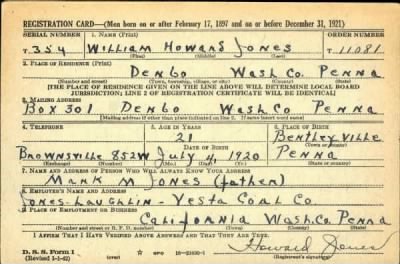 REGISTRATION CARD—(Men born on or after February 17, 1897 and on or before December 31, 1921)
SERIAL NUMBER 1. NAME (Print) ORDER NUMBER
T. 354 William Howard Jones T. 11081
(First) (Middle) (Last)
2. PLACE OF RESIDENCE (Print)
Denbo Wash. Co. Penna
(Number and street) (Town, township, village, or city) (County) (State)
[THE PLACE OF RESIDENCE GIVEN ON THE LINE ABOVE WILL DETERMINE LOCAL BOARD
JURISDICTION; LINE 2 OF REGISTRATION CERTIFICATE WILL BE IDENTICAL]
3. MAILING ADDRESS
Box 301 Denbo Wash Co Penna
[Mailing address if other than place indicated on line 2. If same insert word same]
4. TELEPHONE 5. AGE IN YEARS 6. PLACE OF BIRTH
21 Bentleyville
DATE OF BIRTH (Town or county)
Brownsville 852W July 4, 1920 Penna
(Exchange) (Number) (Mo.) (Day) (Yr.) (State or country)
7. NAME AND ADDRESS OF PERSON WHO WILL ALWAYS KNOW YOUR ADDRESS
Mark M Jones (father)
8. EMPLOYER'S NAME AND ADDRESS
Jones-Laughlin - Vesta Coal Co
9. PLACE OF EMPLOYMENT OR BUSINESS
California Wash. Co. Penna
(Number and street or R. F. D. number) (Town) (County) (State)
I AFFIRM THAT I HAVE VERIFIED ABOVE ANSWERS AND THAT THEY ARE TRUE.
D. S. S. Form 1
(Revised 1-1-42) GPO 16-21630-1 Howard Jones
(Registrant's signature)